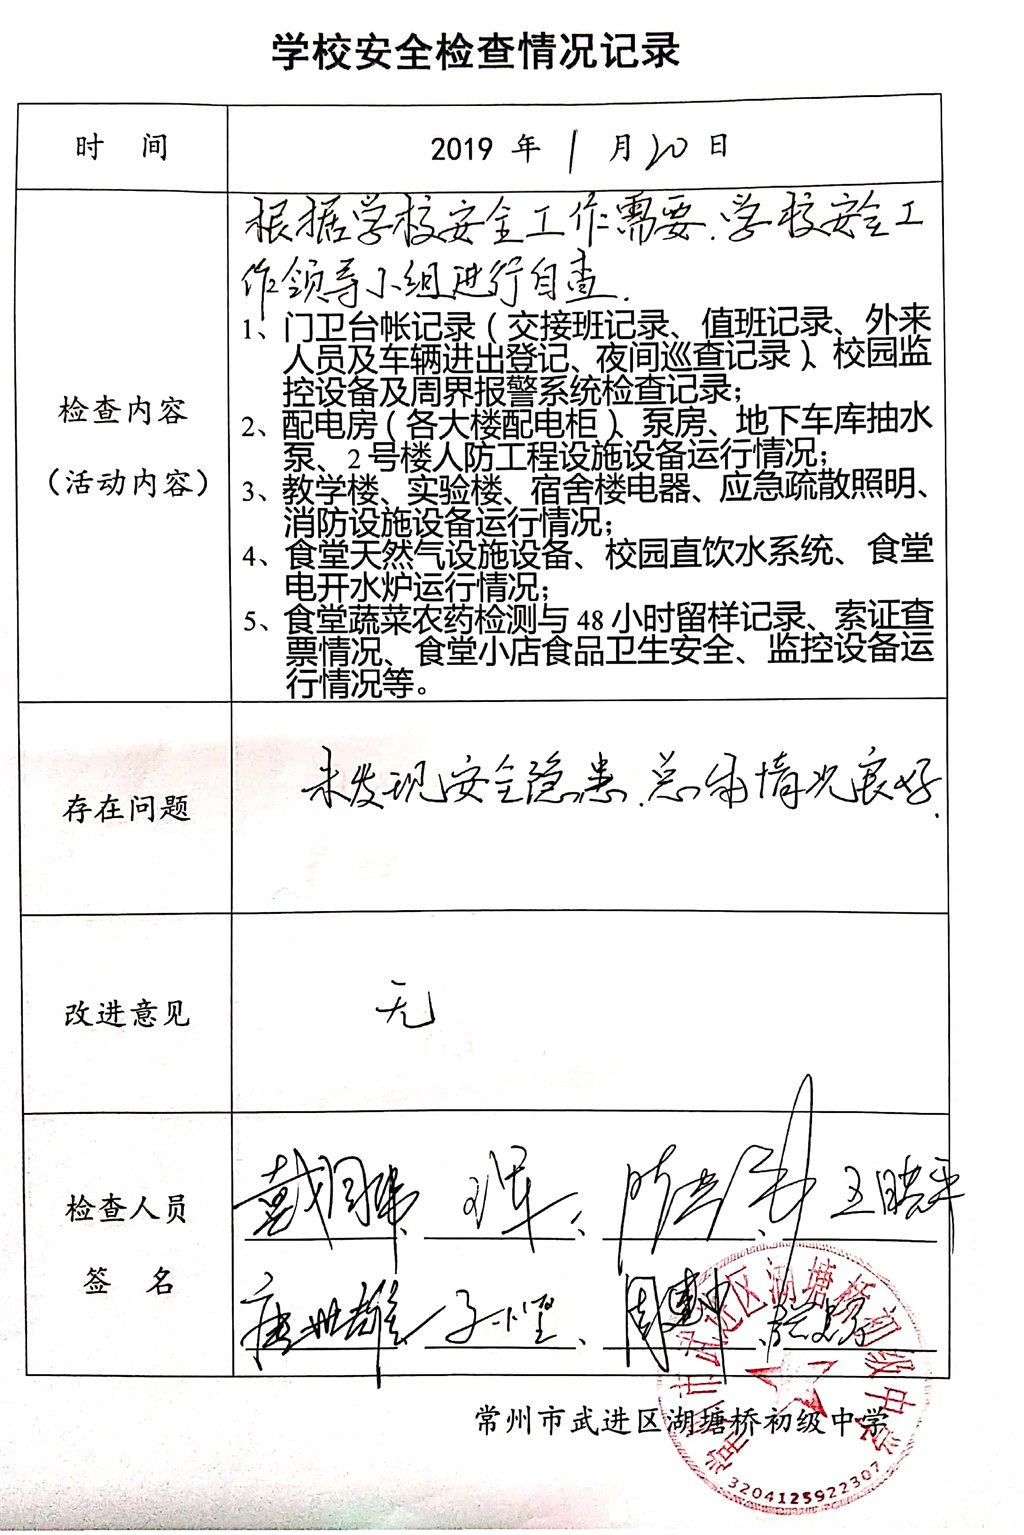 学校安全检查情况记录
时 间
2019 年 1 月 20 日
检查内容
（活动内容）
根据学校安全工作需要.学校安全工
作领导小组进行自查.
1、门卫台帐记录（交接班记录、值班记录、外来
人员及车辆进出登记、夜间巡查记录）、校园监
控设备及周界报警系统检查记录；
2、配电房（各大楼配电柜）、泵房、地下车库抽水
泵、2 号楼人防工程设施设备运行情况；
3、教学楼、实验楼、宿舍楼电器、应急疏散照明、
消防设施设备运行情况；
4、食堂天然气设施设备、校园直饮水系统、食堂
电开水炉运行情况；
5、食堂蔬菜农药检测与 48 小时留样记录、索证查
票情况、食堂小店食品卫生安全、监控设备运
行情况等。
存在问题
未发现安全隐患.总体情况良好.
改进意见
无
检查人员
签 名
常州市武进区湖塘桥初级中学
常州市武进区湖塘桥初级中学
3204125922307